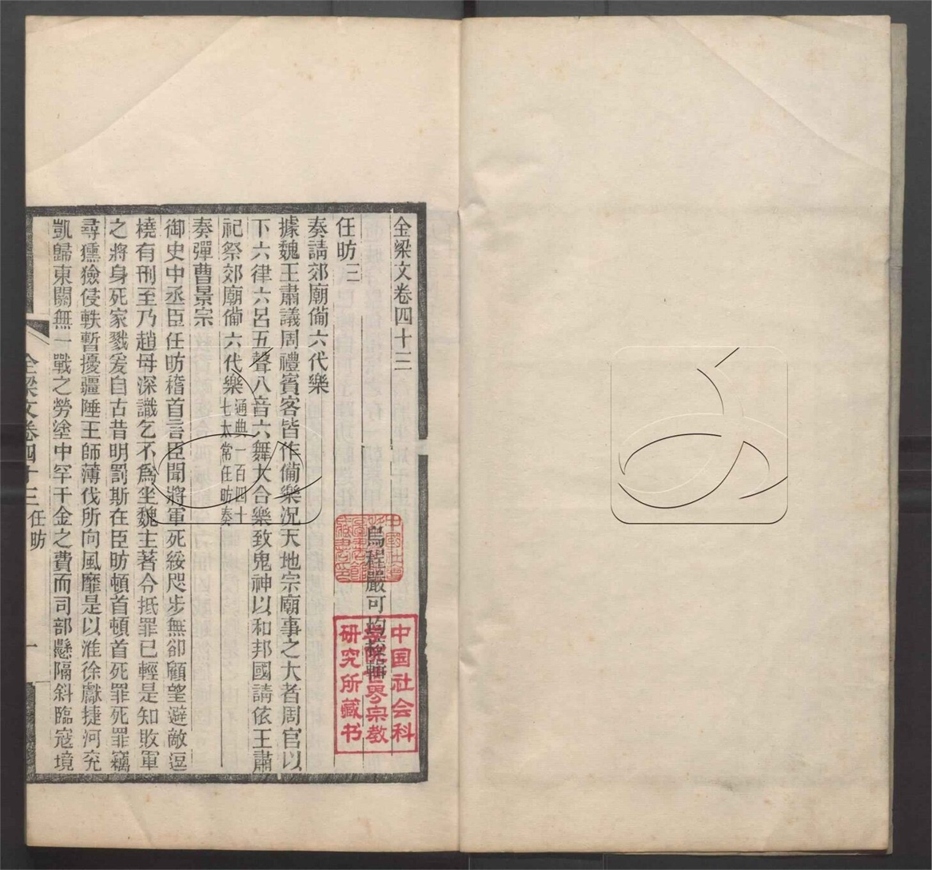 全梁文卷四十三
烏程嚴可均校輯
任昉三
奏請郊廟備六代樂
據魏王肅議周禮賓客皆作備樂況天地宗廟事之大者周官以
下六律六呂五聲八音六舞大合樂致鬼神以和邦國請依王肅
祀祭郊廟備六代樂
通典一百四十
七太常任昉奏
奏彈曹景宗
御史中丞臣任昉稽首言臣聞將軍死綏咫步無卻顧望避敵逗
橈有刑至乃趙母深識乞不為坐魏主著令抵罪已輕是知敗軍
之將身死家戮爰自古昔明罰斯在臣昉頓首頓首死罪死罪竊
尋獯獫侵軼暫擾疆陲王師薄伐所向風靡是以淮徐獻捷河兗
凱歸東關無一戰之勞塗中罕千金之費而司部懸隔斜臨寇境
全梁文卷四十三
任昉
一
中国社会科
学院世界宗教
研究所藏书